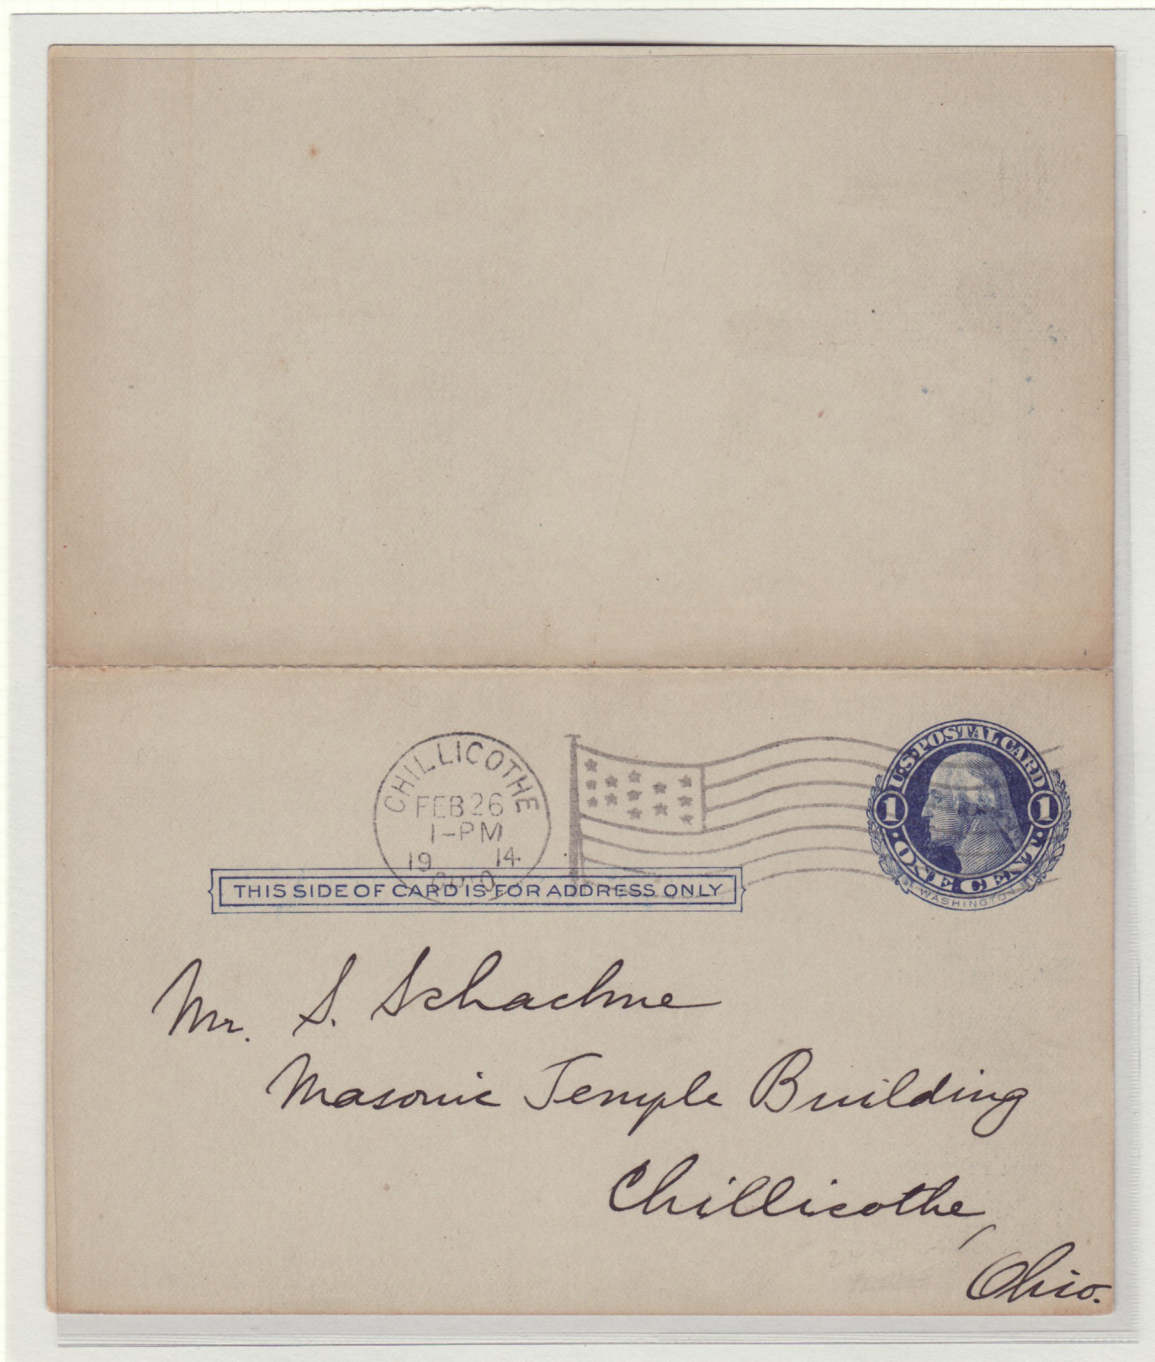 CHILLICOTHE
FEB 26
1-PM
19 14
OHIO
U.S. POSTAL CARD
1 1
·ONE CENT·
WASHINGTON
THIS SIDE OF CARD IS FOR ADDRESS ONLY
Mr. S. Schachne
Masonic Temple Building
Chillicothe,
Ohio.